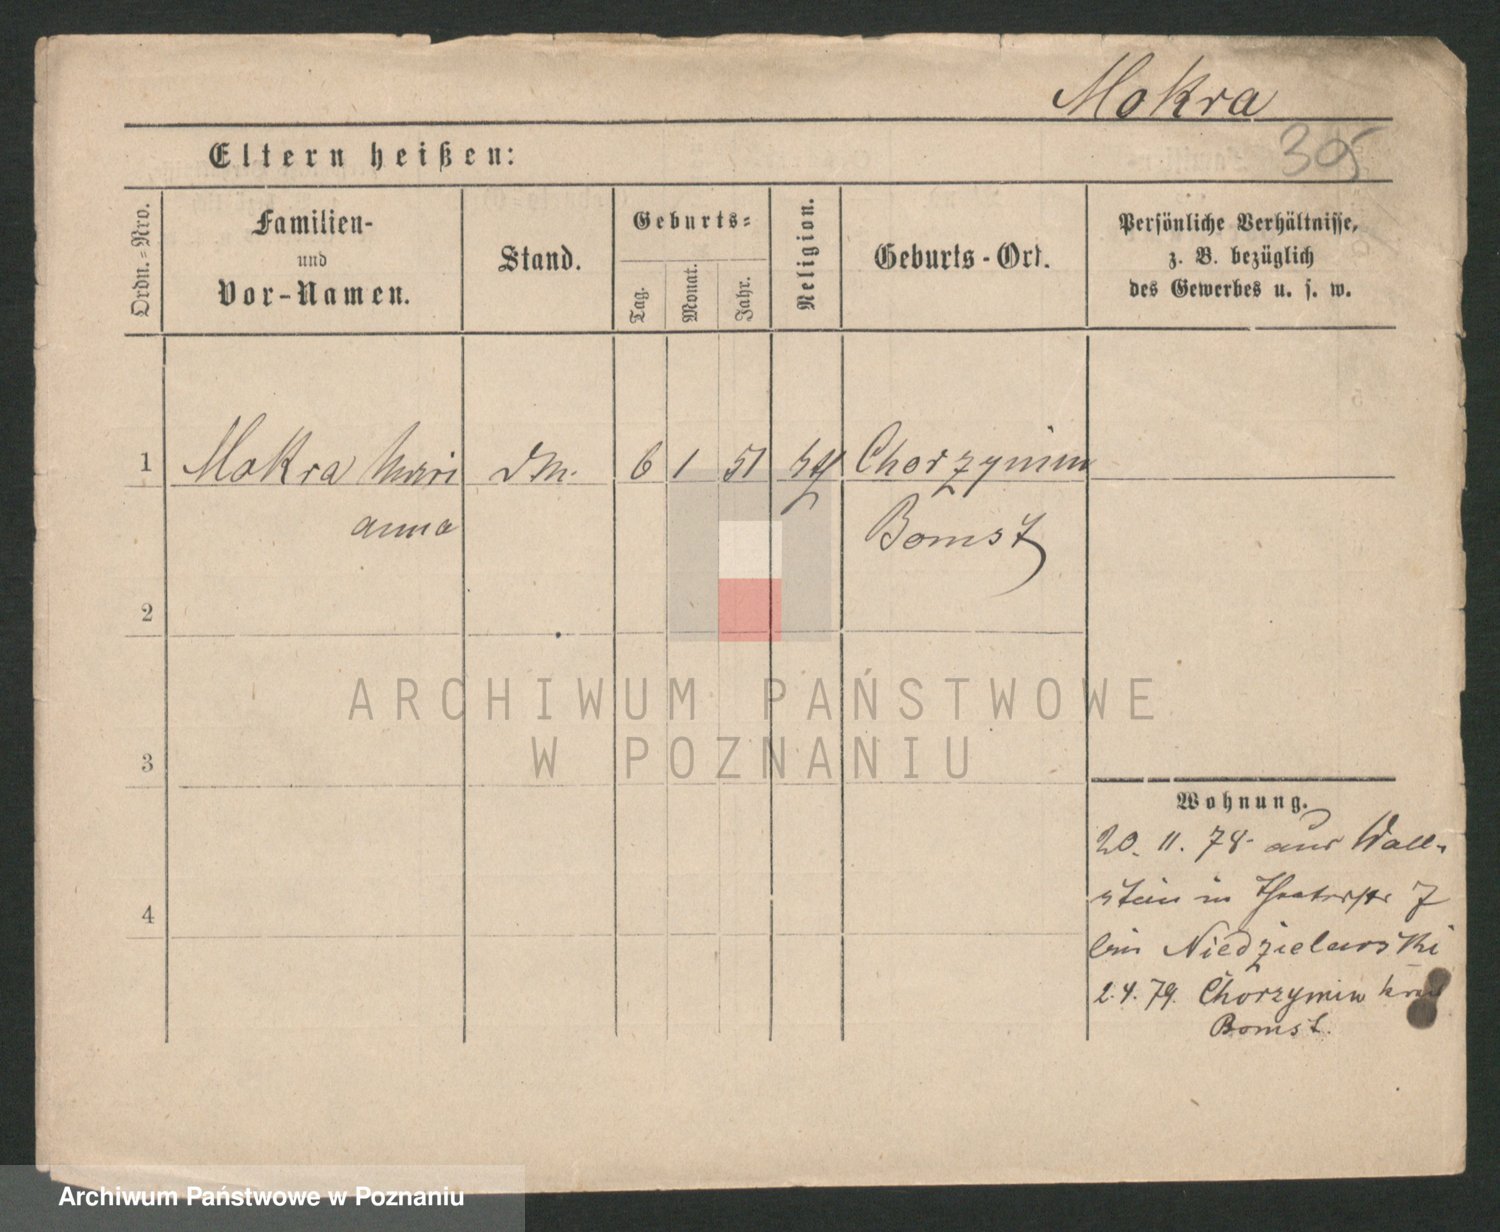 Mokra
305
Eltern heißen:
Ordn.-Nro.
Familien-
und
Vor-Namen.
Stand.
Geburts-
Tag.
Monat.
Jahr.
Religion.
Geburts-Ort.
Persönliche Verhältnisse,
z. B. bezüglich
des Gewerbes u. s. w.
1 Mokra Mari DM. 6 1 51 Chorzymin
anna Bomst
2
3
4
Wohnung.
20. 11. 78. aus Woll-
stein in Theaterstr 7
bei Niedzielawski
2.4.79. Chorzymin Kreis
Bomst.
ARCHIWUM PAŃSTWOWE
W POZNANIU
Archiwum Państwowe w Poznaniu